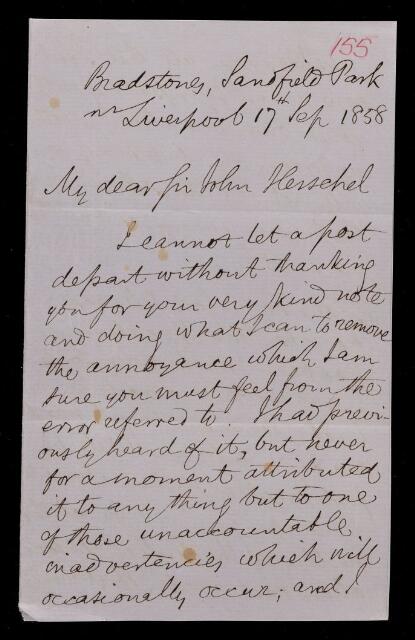 155
Bradstones, Sandfield Park
nr Liverpool 17th Sep 1858
My dear Sir John Herschel
I cannot let a post
depart without thanking
you for your very kind note
and doing what I can to remove
the annoyance which I am
sure you must feel from the
error referred to. I had previ-
ously heard of it, but never
for a moment attributed
it to any thing but to one
of those unaccountable
inadvertencies which will
occasionally occur; and I